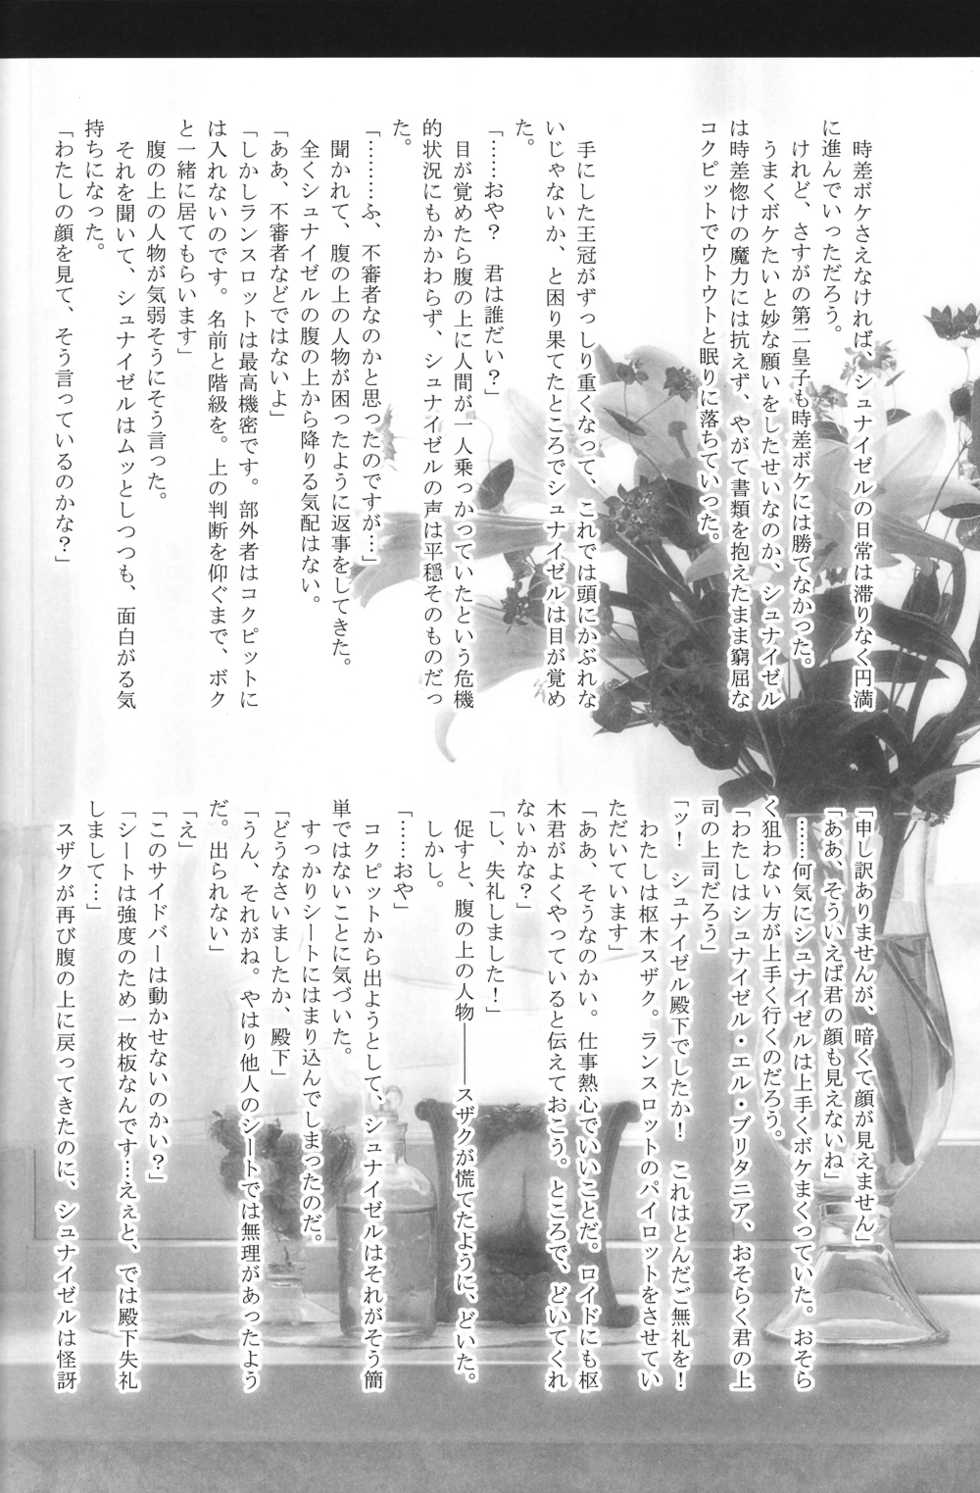 時差ボケさえなければ、シュナイゼルの日常は滞りなく円満
に進んでいっただろう。
　けれど、さすがの第二皇子も時差ボケには勝てなかった。
　うまくボケたいと妙な願いをしたせいなのか、シュナイゼル
は時差惚けの魔力には抗えず、やがて書類を抱えたまま窮屈な
コクピットでウトウトと眠りに落ちていった。
　手にした王冠がずっしり重くなって、これでは頭にかぶれな
いじゃないか、と困り果てたところでシュナイゼルは目が覚め
た。
「……おや？　君は誰だい？」
　目が覚めたら腹の上に人間が一人乗っかっていたという危機
的状況にもかかわらず、シュナイゼルの声は平穏そのものだっ
た。
「………ふ、不審者なのかと思ったのですが…」
　聞かれて、腹の上の人物が困ったように返事をしてきた。
　全くシュナイゼルの腹の上から降りる気配はない。
「ああ、不審者などではないよ」
「しかしランスロットは最高機密です。部外者はコクピットに
は入れないのです。名前と階級を。上の判断を仰ぐまで、ボク
と一緒に居てもらいます」
　腹の上の人物が気弱そうにそう言った。
　それを聞いて、シュナイゼルはムッとしつつも、面白がる気
持ちになった。
「わたしの顔を見て、そう言っているのかな？」
「申し訳ありませんが、暗くて顔が見えません」
「ああ、そういえば君の顔も見えないね」
　……何気にシュナイゼルは上手くボケまくっていた。おそら
く狙わない方が上手く行くのだろう。
「わたしはシュナイゼル・エル・ブリタニア、おそらく君の上
司の上司だろう」
「ッ！　シュナイゼル殿下でしたか！　これはとんだご無礼を！
　わたしは枢木スザク。ランスロットのパイロットをさせてい
ただいています」
「ああ、そうなのかい。仕事熱心でいいことだ。ロイドにも枢
木君がよくやっていると伝えておこう。ところで、どいてくれ
ないかな？」
「し、失礼しました！」
　促すと、腹の上の人物――スザクが慌てたように、どいた。
　しかし。
「……おや」
　コクピットから出ようとして、シュナイゼルはそれがそう簡
単ではないことに気づいた。
　すっかりシートにはまり込んでしまったのだ。
「どうなさいましたか、殿下」
「うん、それがね。やはり他人のシートでは無理があったよう
だ。出られない」
「え」
「このサイドバーは動かせないのかい？」
「シートは強度のため一枚板なんです…えぇと、では殿下失礼
しまして…」
　スザクが再び腹の上に戻ってきたのに、シュナイゼルは怪訝